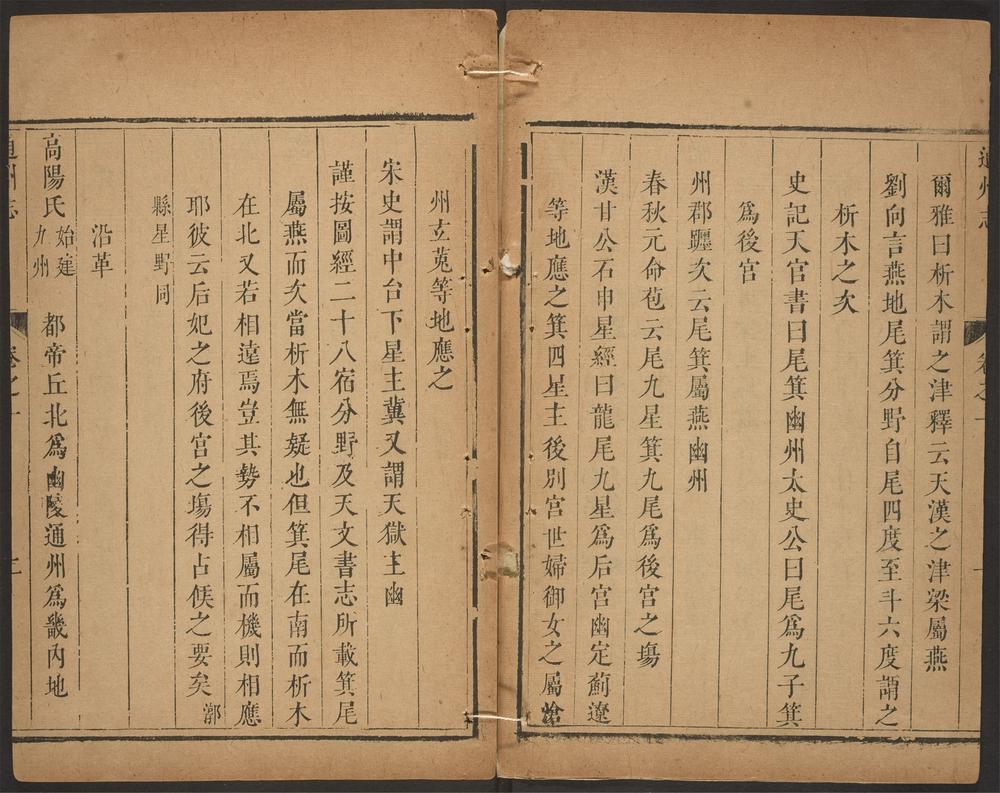 通州志
卷之一
爾雅曰析木謂之津釋云天漢之津梁屬燕
劉向言燕地尾箕分野自尾四度至斗六度謂之
析木之次
史記天官書曰尾箕幽州太史公曰尾爲九子箕
爲後宮
州郡躔次云尾箕屬燕幽州
春秋元命苞云尾九星箕九尾爲後宮之塲
漢甘公石申星經曰龍尾九星爲后宮幽定薊遼
等地應之箕四星主後別宮世婦御女之屬
州立菟等地應之
宋史謂中台下星主冀又謂天獄主幽
謹按圖經二十八宿分野及天文書志所載箕尾
屬燕而次當析木無疑也但箕尾在南而析木
在北又若相遠焉豈其勢不相屬而機則相應
耶彼云后妃之府後宮之塲得占候之要矣漷
縣星野同
沿革
高陽氏始建九州 都帝丘北爲幽陵通州爲畿内地
通州志
卷之一
二